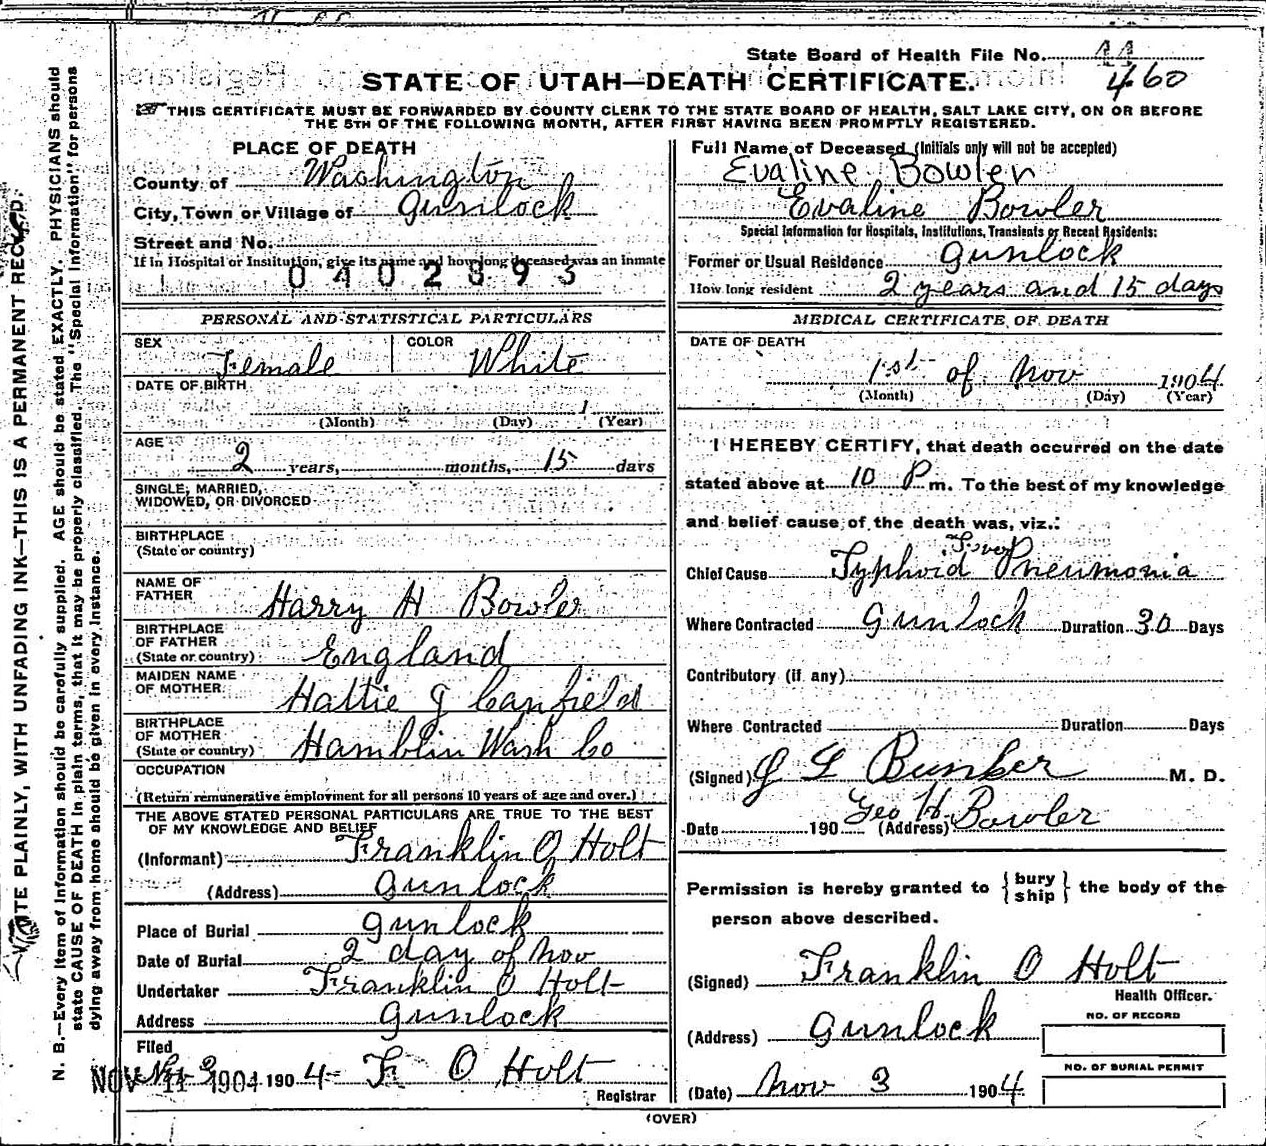 State Board of Health File No. 44
460
STATE OF UTAH—DEATH CERTIFICATE.
THIS CERTIFICATE MUST BE FORWARDED BY COUNTY CLERK TO THE STATE BOARD OF HEALTH, SALT LAKE CITY, ON OR BEFORE
THE 5TH OF THE FOLLOWING MONTH, AFTER FIRST HAVING BEEN PROMPTLY REGISTERED.
PLACE OF DEATH
County of Washington
City, Town or Village of Gunlock
Street and No.
If in Hospital or Institution, give its name and how long deceased was an inmate
0402893
PERSONAL AND STATISTICAL PARTICULARS
SEX Female COLOR White
DATE OF BIRTH
1
(Month) (Day) (Year)
AGE
2 years, months, 15 days
SINGLE, MARRIED,
WIDOWED, OR DIVORCED
BIRTHPLACE
(State or country)
NAME OF
FATHER Harry H Bowler
BIRTHPLACE
OF FATHER
(State or country) England
MAIDEN NAME
OF MOTHER Hattie J Canfield
BIRTHPLACE
OF MOTHER
(State or country) Hamblin Wash Co
OCCUPATION
(Return remunerative employment for all persons 10 years of age and over.)
THE ABOVE STATED PERSONAL PARTICULARS ARE TRUE TO THE BEST
OF MY KNOWLEDGE AND BELIEF
(Informant) Franklin O Holt
(Address) Gunlock
Place of Burial Gunlock
Date of Burial 2 day of Nov
Undertaker Franklin O Holt
Address Gunlock
Filed
Nov 3 1904 F O Holt
NOV 11 1904
Registrar
Full Name of Deceased (Initials only will not be accepted)
Evaline Bowler
Evaline Bowler
Special Information for Hospitals, Institutions, Transients or Recent Residents:
Former or Usual Residence Gunlock
How long resident 2 years and 15 days
MEDICAL CERTIFICATE OF DEATH
DATE OF DEATH
1st of Nov 1904
(Month) (Day) (Year)
I HEREBY CERTIFY, that death occurred on the date
stated above at 10 P m. To the best of my knowledge
and belief cause of the death was, viz.:
Fever
Chief Cause Typhoid Pneumonia
Where Contracted Gunlock Duration 30 Days
Contributory (if any)
Where Contracted Duration Days
(Signed) J L Bunker M. D.
Geo H Bowler
Date 190 (Address)
Permission is hereby granted to { bury ship } the body of the
person above described.
(Signed) Franklin O Holt
Health Officer.
(Address) Gunlock
NO. OF RECORD
NO. OF BURIAL PERMIT
(Date) Nov 3 1904
(OVER)
PLAINLY, WITH UNFADING INK—THIS IS A PERMANENT RECORD.
N. B.—Every item of information should be carefully supplied. AGE should be stated EXACTLY. PHYSICIANS should
state CAUSE OF DEATH in plain terms, that it may be properly classified. The "Special Information" for persons
dying away from home should be given in every instance.